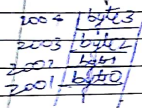 2004 byte3
2003 byte2
2002 byte1
2001 byte0